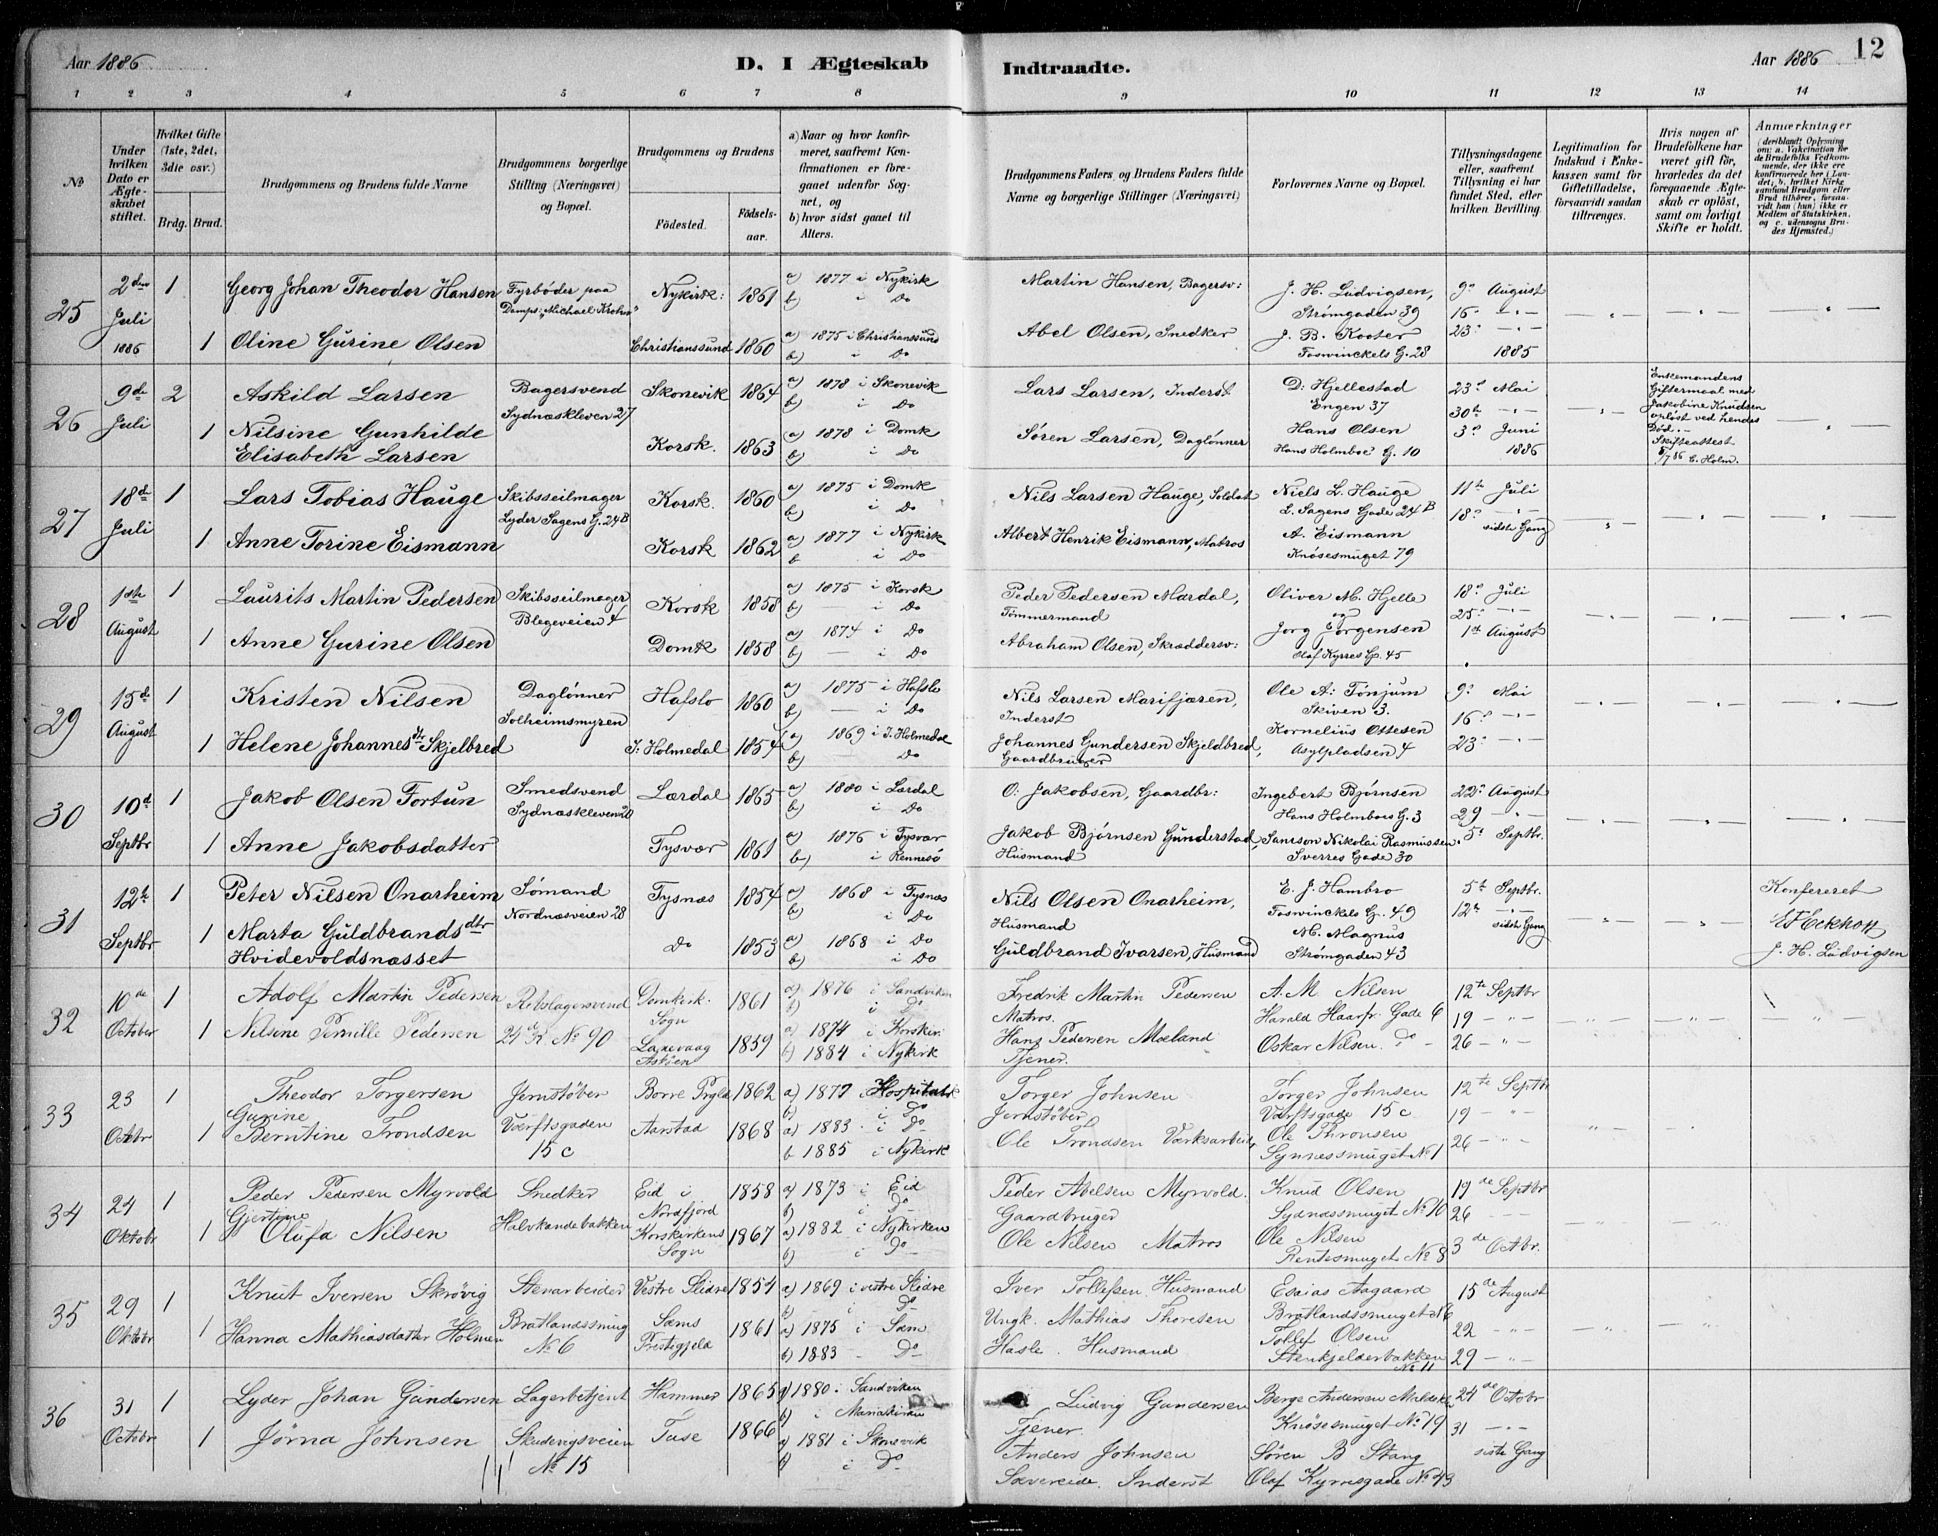 Aar 1886
D. I Ægteskab
Indtraadte.
Aar 1886
12
1 2 3 4 5 6 7 8 9 10 11 12 13 14
No
Under hvilken Dato er Ægteskabet stiftet.
Hvilket Gifte (1ste, 2det, 3die osv.)
Brdg. Brud.
Brudgommens og Brudens fulde Navne
Brudgommens borgerlige Stilling (Næringsvei) og Bopæl.
Brudgommens og Brudens
Födested.
Födselsaar.
a) Naar og hvor konfirmeret, saafremt Konfirmationen er foregaaet udenfor Sognet, og
b) hvor sidst gaaet til Alters.
Brudgommens Faders og Brudens Faders fulde Navne og borgerlige Stillinger (Næringsvei)
Forlovernes Navne og Bopæl.
Tillysningsdagene eller, saafremt Tillysning ei har fundet Sted, efter hvilken Bevilling.
Legitimation for Indskud i Enkekassen samt for Giftetilladelse, forsaavidt saadan tiltrænges.
Hvis nogen af Brudefolkene har været gift för, hvorledes da det foregaaende Ægteskab er oplöst, samt om lovligt Skifte er holdt.
Anmærkninger (deriblandt Oplysning om: a. Vakcination for de Brudefolks Vedkommende, der ikke ere konfirmerede her i Landet; b. hvilket Kirkesamfund Brudgom eller Brud tilhörer, forsaavidt han (hun) ikke er Medlem af Statskirken, og c. udensogns Brudes Hjemsted.)
25
2den Juli 1886
1
Georg Johan Theodor Hansen
Fyrbøder paa
Damps: "Michael Krohn"
Nykirk: 1861
a) 1877 i Nykirk
b) i Do
Martin Hansen, Bagersv:
J. H. Ludvigsen,
Strømgaden 39
9de August
16 -"-
1 Oline Gurine Olsen
Christianssund 1860
a) 1875 i Christianssund
b) i Do
Abel Olsen, Snedker
J. B. Kooter
Foswinckels G. 28
23 -"-
1885
26
9de Juli
2
Askild Larsen
Bagersvend
Sydnæskleven 27
Skonevik 1864
a) 1878 i Skonevik
b) i Do
Lars Larsen, Inderst
D: Hjellestad
Engen 37
23 Mai
30te -"-
Enkemandens
Giftermaal med
Jakobine Knudsen
opløst ved hendes
Død. -
Skifteattest
5/7 86 C. Holm.
1 Nilsine Gunhilde
Elisabeth Larsen
Korsk. 1863
a) 1878 i Domk
b) i Do
Søren Larsen, Daglønner
Hans Olsen
Hans Holmboe G. 10
3 Juni
1886
27
18de Juli
1
Lars Tobias Hauge
Skibsseilmager
Lyder Sagens G. 24B
Korsk. 1860
a) 1875 i Domk
b) i Do
Nils Larsen Hauge, Soldat
Niels L. Hauge
L. Sagens Gade 24B
11te Juli
18 -"-
sidste Gang
1 Anne Torine Eismann
Korsk 1862
a) 1877 i Nykirk
b i Do
Albert Henrik Eismann, Matros
A. Eismann
Knøsesmuget 79
28
1ste August
1
Laurits Martin Pedersen
Skibsseilmager
Blegeveien 4
Korsk 1858
a) 1875 i Korsk
b) — i Do
Peder Pedersen Mardal,
Tømmermand
Oliver M. Hjelle
og
18 Juli
25 -"-
1 Anne Gurine Olsen
Domk 1858
a) 1874 i Do
b) — i Do
Abraham Olsen, Skræddersv:
Jorg Jörgensen
Olaf Kyrres G. 45
1ste August
29
15de August
1
Kristen Nilsen
Daglønner
Solheimsmyren
Hafslo 1860
a) 1875 i Hafslo
b) — i Do
Nils Larsen Marifjæren,
Inderst
Ole A: Tønjum
Skiven 3.
9 Mai
16 -"-
1 Helene Johannesdtr Skjelbred
I: Holmedal 1854
a) 1869 i I. Holmedal
b) — Do
Johannes Gundersen Skjeldbred,
Gaardbruger
Kornelius Ottesen
Asylpladsen 4
23 -"-
30
10d Septbr
1
Jakob Olsen Fortun
Smedsvend
Sydnæskleven 20
Lærdal 1865
a) 1880 i Lærdal
b) i Do
O: Jakobsen, Gaardbr:
Ingebert Bjørnsen
Hans Holmboes G. 3
22 August
29 -"-
1 Anne Jakobsdatter
Tysvær 1861
a) 1876 i Tysvær
b) i Rennesö
Jakob Bjørnsen Gunderstad,
Husmand
Samson Nikolai Rasmussen
Sverres Gade 30
5 Septbr.
31
12te Septbr
1
Peter Nilsen Onarheim
Sømand
Nordnæsveien 28
Tysnæs 1854
a) 1868 i Tysnæs
b) i Do
Nils Olsen Onarheim,
Husmand
E. J. Hambro
Foswinckels G. 49
5te Septbr.
12te -"-
sidste Gang
Konfereret
J. H. Ludvigsen
1 Marta Guldbrandsdtr
Hvidevoldsnæsset
Do 1853
a) 1868 i Do
b) i Do
Guldbrand Ivarsen, Husmand
M. Magnus
Strømgaden 43
32
10de October
1
Adolf Martin Pedersen
Rebslagersvend
24de R. No 90
Domkirk. Sogn 1861
a) 1876 i Sandviken
b) i Do
Fredrik Martin Pedersen
Matros.
A. M. Nilsen
Harald Haarfr. Gade 6
12te Septbr
19 -"-
1 Nilsine Pernille Pedersen
Laxevaag Askøen 1859
a) 1874 i Korskir.
b) 1884 i Nykirk
Hans Pedersen Moeland
Tjener.
Oskar Nilsen. Do -
26 -"-
33
23 Octbr
1
Theodor Torgersen
Jernstøber
Værftsgaden
15 c
Borre Prgld 1862
a) 1877 i Hospitalsk
b) i Do
Torger Johnsen
Jernstøber
Torger Johnsen
Værftsgade 15 c
12te Septbr
19 -"-
1 Gurine
Berntine Trondsen
Aarstad 1868
a) 1883 - i Do
b 1885 i Nykirk
Ole Trondsen Værksarbeid,
Ole Thronsen
Synnæssmuget No 1
26 -"-
34
24 Oktobr
1
Peder Pedersen Myrvold
Snedker
Halvkandebakken
Eid i Nordfjord 1858
a) 1873 i Eid
b) i Do
Peder Abelsen Myrvold.
Gaardbruger
Knud Olsen
Sydnæssmuget No 10
19de Septbr
26 -"-
1 Gjertine
Olufa Nilsen
Korskirkens Sogn 1867
a) 1882 i Nykirken
b) - Do
Ole Nilsen Matros
Ole Nilsen
Rentesmuget No 8
3de Octbr.
35
29 Oktobr
1
Knut Iversen Skrøvig
Stenarbeider
Bratlandssmug
No 6
Vestre Slidre 1854
a) 1869 i vestre Slidre
b) Do
Iver Tollefsen Husmand
Esaias Aagaard
Bratlandssmuget No 6
15de August
22 -"-
1 Hanna Mathiasdatter Holmen
Sams Prestigjeld 1861
a) 1875 i Sam
b) 1883 - Do
Ungk. Mathias Thoresen
Hasle. Husmand
Tollef Olsen
Stenkjelderbakken
No 11
29 -"-
36
31 Octobr
1
Lyder Johan Gundersen
Lagerbetjent
Skutevigsveien
No 15
Hammer 1865
a) 1880 i Sandviken
b) i Mariakirken
Ludvig Gundersen
Tjener.
Berge Andersen
Knøsesmuget No 19
24de Octobr
31 -"-
siste Gang
1 Jørna Johnsen
1866
a) 1881 i Skonevik
b) i Do
Anders Johnsen
Sævereide. Inderst
Søren B Stang
Olaf Kyrresgade No 49